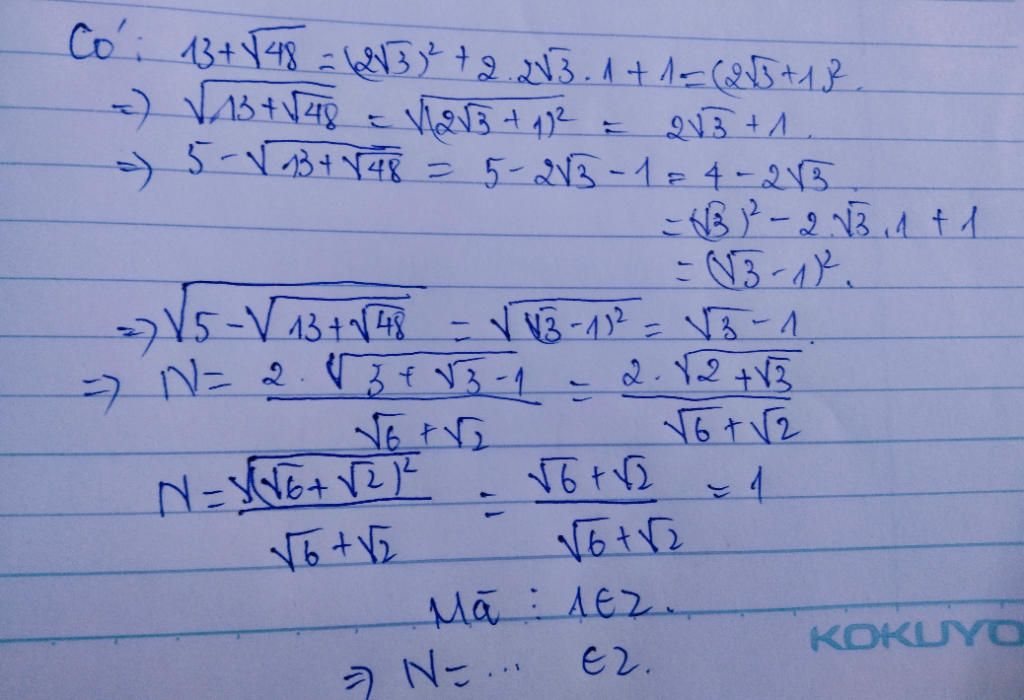 Có: 13+√48 = (2√3)² + 2.2√3.1 + 1 = (2√3+1)².
=> √(13+√48) = √((2√3+1)²) = 2√3+1.
=> 5-√(13+√48) = 5-2√3-1 = 4-2√3.
= (√3)² - 2.√3.1 + 1
= (√3-1)².
=> √(5-√(13+√48)) = √((√3-1)²) = √3-1.
=> N = (2.√(3+√3-1))/(√6+√2) = (2.√(2+√3))/(√6+√2)
N = √((√6+√2)²)/(√6+√2) = (√6+√2)/(√6+√2) = 1
Mà : 1∈Z.
KOKUYO
=> N = ... ∈Z.